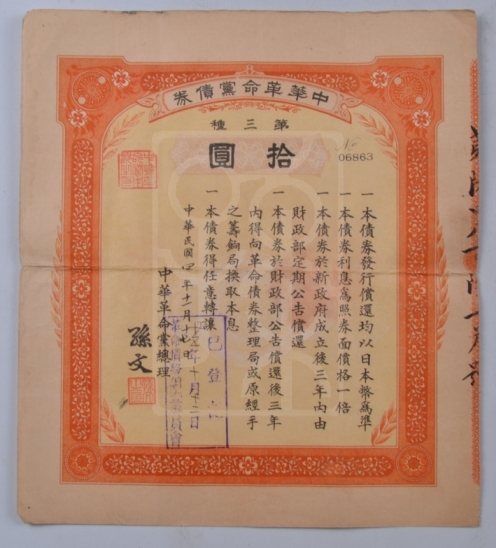 中華革命黨債券
第三種
拾圓
06863
一本債券發行償還均以日本幣為準
一本債券利息為照券面價格一倍
一本債券於新政府成立後三年內由
財政部定期公告償還
一本債券於財政部公告償還後三年
內得向革命債券整理局或原經手
之籌餉局換取本息
一本債券得任意轉讓
中華民國四年十二月十七日
中華革命黨總理
孫文
已登記
年十月十二日